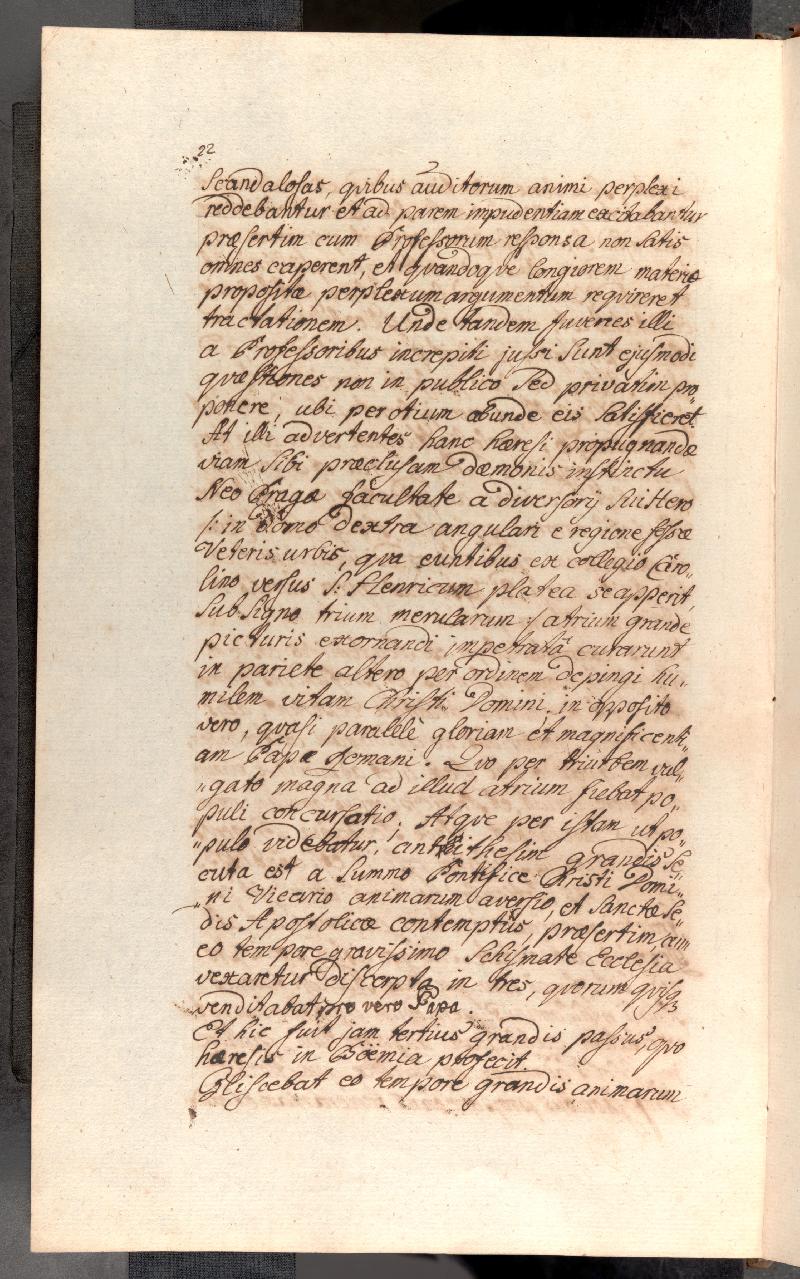 22
Scandalosas, quibus auditorum animi perplexi
reddebantur et ad parem impudentiam excitabantur
præsertim cum Professorum responsa non satis
omnes caperent, et quandoque longiorem materiæ
propositæ perplexum argumentum requireret
tractationem. Unde tandem Juvenes illi
a Professoribus increpiti jussi sunt ejusmodi
quæstiones non in publico sed privatim pro„
ponere, ubi per otium abunde eis satisfieret.
At illi advertentes hanc hæresi propugnandæ
viam sibi præclusam dæmonis instinctu
Neo Pragæ facultate a diversorij sui Hero
/: in domo dextra angulari e regione fossæ
Veteris urbis, qua euntibus ex collegio Caro„
lino versus S: Henricum platea se apperit,
sub signo trium merularum :/ atrium grande
picturis exornandi impetratâ curarunt
in pariete altero per ordinem depingi hu„
milem vitam Christi Domini, in opposito
vero, quasi parallelè gloriam et magnificenti„
am Papæ Romani. Quo per triurbem vul„
„gato magna ad illud atrium fiebat po„
puli concursatio. Atque per istam ut po„
„pulo videbatur, antithesim grandis se„
cuta est a Summo Pontifice Christi Domi„
„ni Vicario animarum aversio, et Sanctæ Se„
dis Apostolicæ contemptus, præsertim, cum
eo tempore gravissimo Schismate Ecclesia
vexaretur discerpta in tres, quorum quisq3
venditabat pro vero Papa.
Et hic fuit jam tertius grandis passus, quo
hæresis in Boëmia profecit.
Gliscebat eo tempore grandis animarum